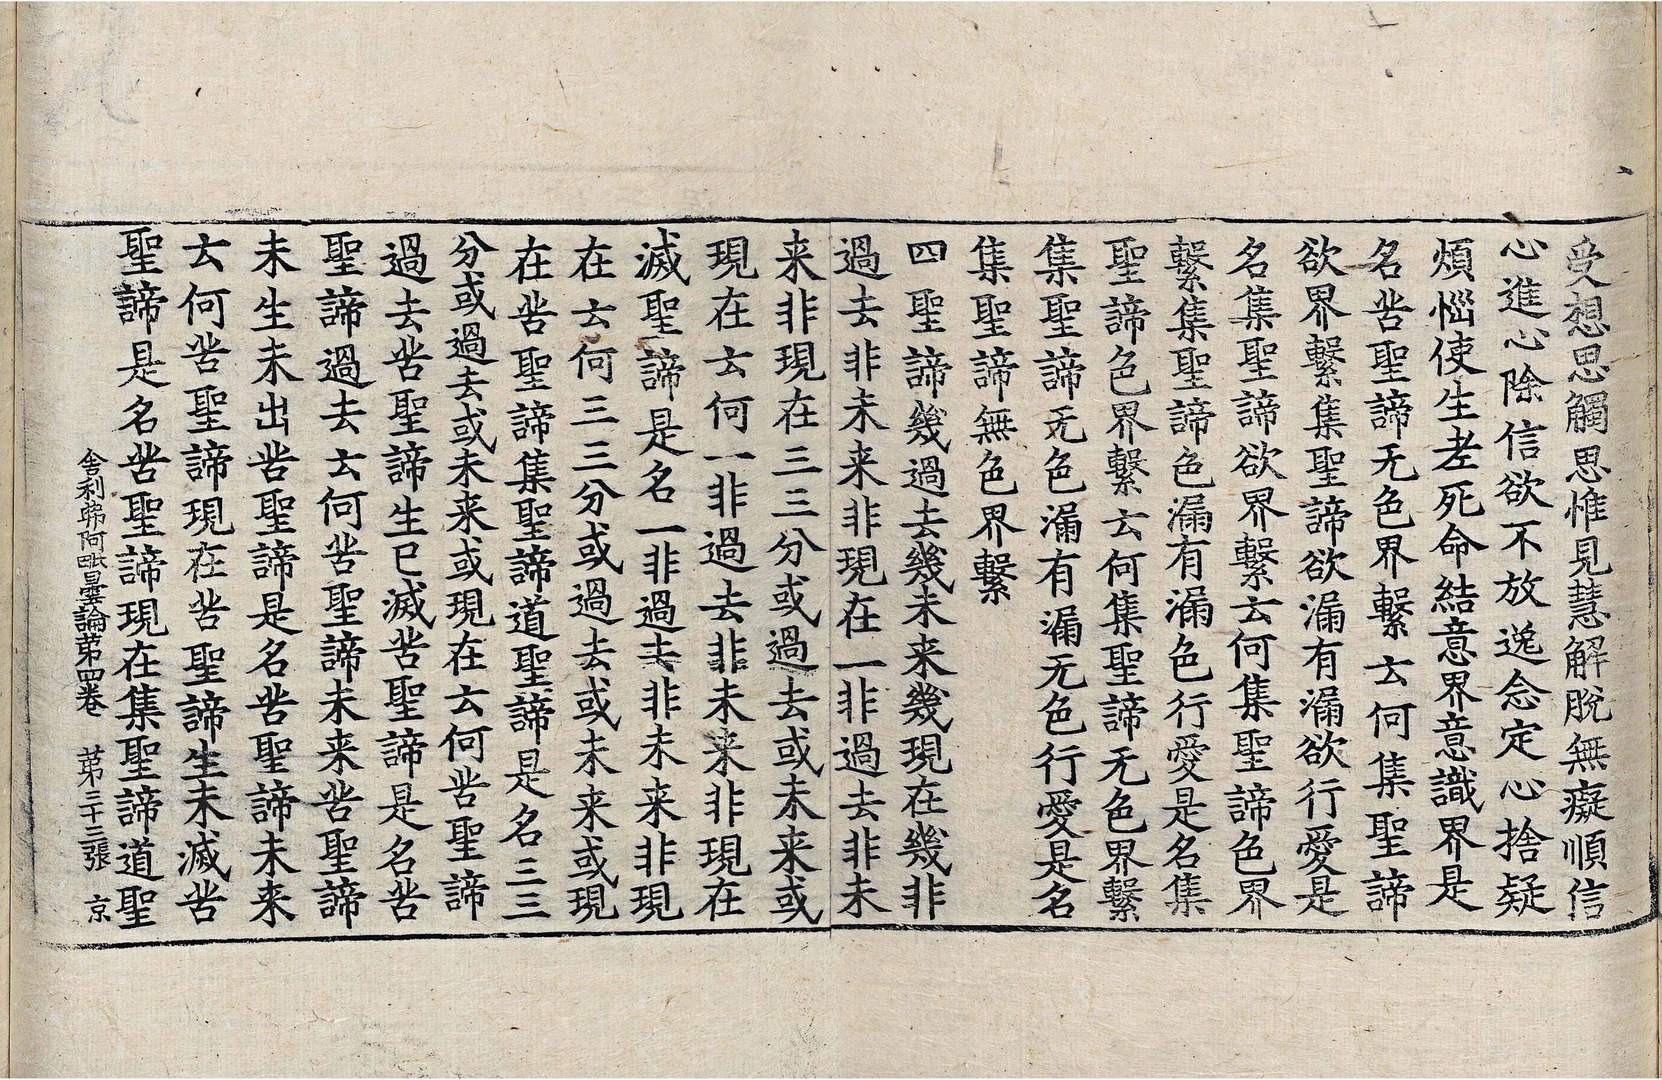 受想思觸思惟見慧解脫無癡順信
心進心除信欲不放逸念定心捨疑
煩惱使生老死命結意界意識界是
名苦聖諦无色界繫云何集聖諦
欲界繫集聖諦欲漏有漏欲行愛是
名集聖諦欲界繫云何集聖諦色界
繫集聖諦色漏有漏色行愛是名集
聖諦色界繫云何集聖諦无色界繫
集聖諦无色漏有漏无色行愛是名
集聖諦無色界繫
四聖諦幾過去幾未来幾現在幾非
過去非未来非現在一非過去非未
来非現在三三分或過去或未来或
現在云何一非過去非未来非現在
滅聖諦是名一非過去非未来非現
在云何三三分或過去或未来或現
在苦聖諦集聖諦道聖諦是名三三
分或過去或未来或現在云何苦聖諦
過去苦聖諦生已滅苦聖諦是名苦
聖諦過去云何苦聖諦未来苦聖諦
未生未出苦聖諦是名苦聖諦未来
云何苦聖諦現在苦聖諦生未滅苦
聖諦是名苦聖諦現在集聖諦道聖
舍利弗阿毗曇論第四卷 第三十三張 京